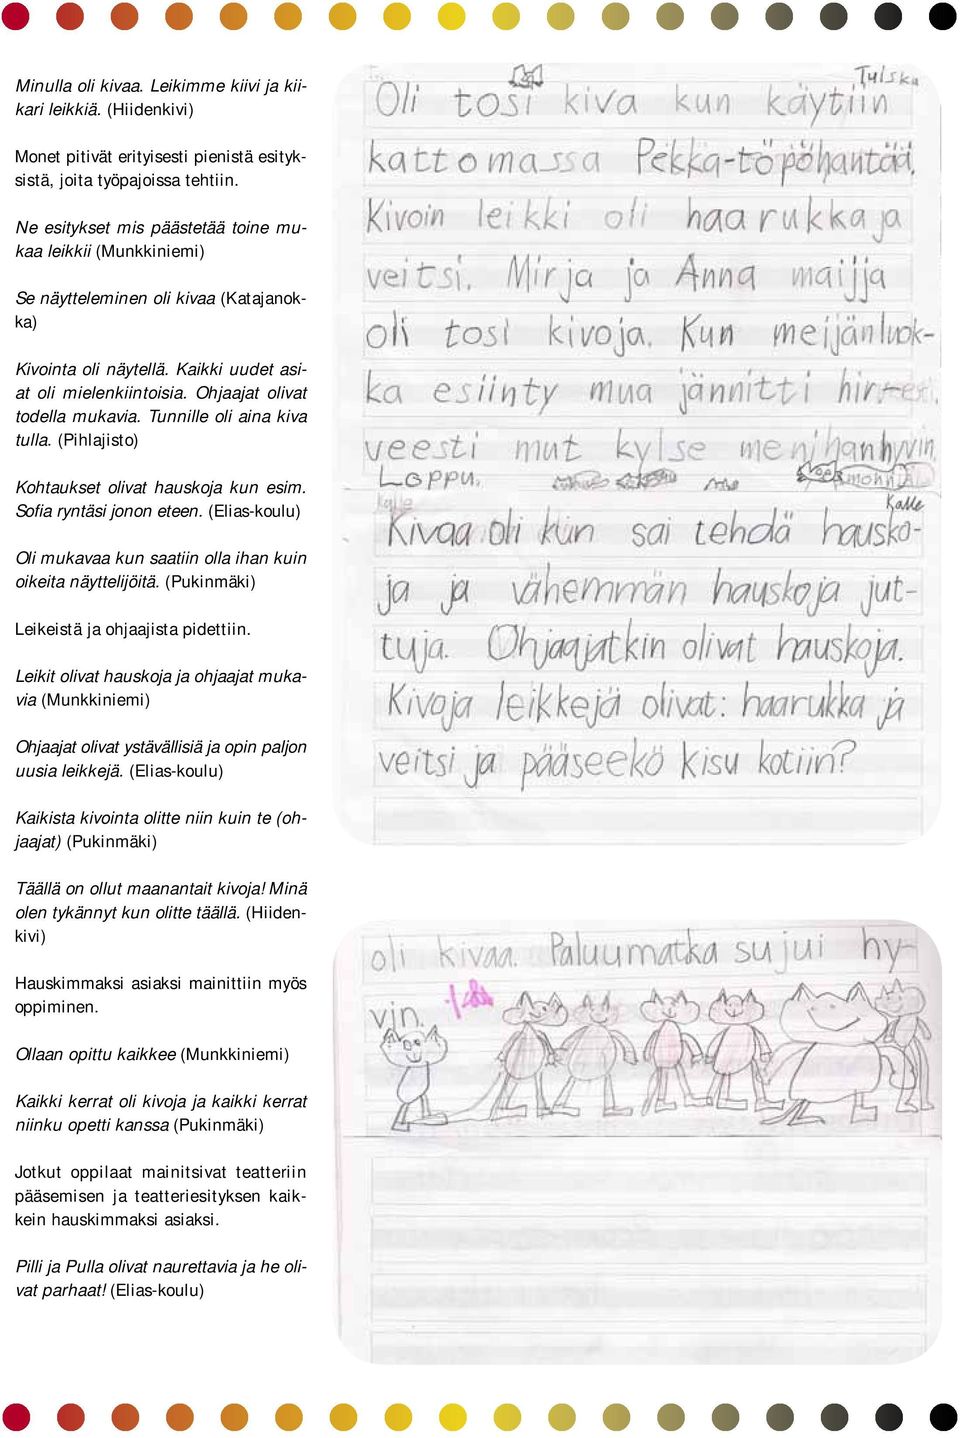 Minulla oli kivaa. Leikimme kiivi ja kii-
kari leikkiä. (Hiidenkivi)
Monet pitivät erityisesti pienistä esityk-
sistä, joita työpajoissa tehtiin.
Ne esitykset mis päästetää toine mu-
kaa leikkii (Munkkiniemi)
Se näytteleminen oli kivaa (Katajanok-
ka)
Kivointa oli näytellä. Kaikki uudet asi-
at oli mielenkiintoisia. Ohjaajat olivat
todella mukavia. Tunnille oli aina kiva
tulla. (Pihlajisto)
Kohtaukset olivat hauskoja kun esim.
Sofia ryntäsi jonon eteen. (Elias-koulu)
Oli mukavaa kun saatiin olla ihan kuin
oikeita näyttelijöitä. (Pukinmäki)
Leikeistä ja ohjaajista pidettiin.
Leikit olivat hauskoja ja ohjaajat muka-
via (Munkkiniemi)
Ohjaajat olivat ystävällisiä ja opin paljon
uusia leikkejä. (Elias-koulu)
Kaikista kivointa olitte niin kuin te (oh-
jaajat) (Pukinmäki)
Täällä on ollut maanantait kivoja! Minä
olen tykännyt kun olitte täällä. (Hiiden-
kivi)
Hauskimmaksi asiaksi mainittiin myös
oppiminen.
Ollaan opittu kaikkee (Munkkiniemi)
Kaikki kerrat oli kivoja ja kaikki kerrat
niinku opetti kanssa (Pukinmäki)
Jotkut oppilaat mainitsivat teatteriin
pääsemisen ja teatteriesityksen kaik-
kein hauskimmaksi asiaksi.
Pilli ja Pulla olivat naurettavia ja he oli-
vat parhaat! (Elias-koulu)
Tulska
Oli tosi kiva kun käytiin
kattomassa Pekka-töpöhäntää.
Kivoin leikki oli haarukka ja
veitsi. Mirja ja Anna maijja
oli tosi kivoja. Kun meijänluok-
ka esiinty mua jännitti hir-
veesti mut kylse meni ihan hyvin.
Loppu.
Kalle
Kivaa oli kun sai tehdä hausko-
ja ja vähemmän hauskoja jut-
tuja. Ohjaajatkin olivat hauskoja.
Kivoja leikkejä olivat: haarukka ja
veitsi ja pääseekö kisu kotiin?
oli kivaa. Paluumatka sujui hy-
vin.